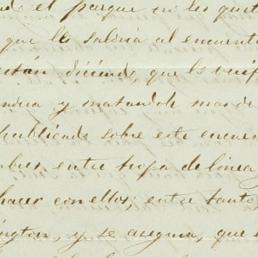 el parque no les quit
que le saldria al encuent
diciendo, que la
y matandole mas de
publicado sobre este encuen
entre tropa de linea
hacer con ellos; entre tanto,
ington, y se asegura, que